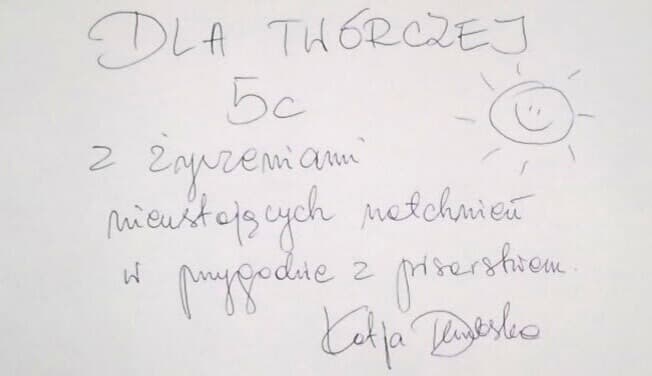 DLA TWÓRCZEJ
5c
z życzeniami
nieustających natchnień
w przygodzie z pisarstwem.
Katja